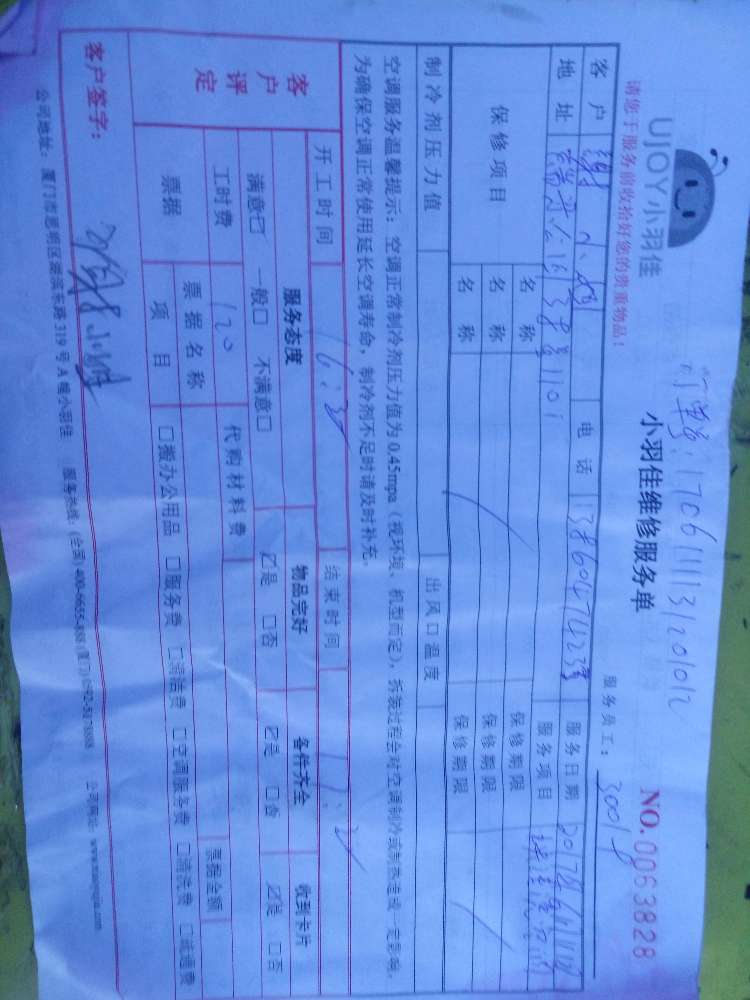 UJOY小羽佳
订单号:1706111131201012
小羽佳维修服务单
NO.0063828
请您于服务前收拾好您的贵重物品!
服务员工: 3001
客户 谢小姐 电话 服务日期
地址 1101 服务项目
保修项目 名称 保修期限
名称 保修期限
名称 保修期限
制冷剂压力值 出风口温度
空调服务温馨提示:空调正常制冷剂压力值为0.45mpa(视环境、机型而定),拆装过程会对空调制冷或制热造成一定影响,
为确保空调正常使用延长空调寿命,制冷剂不足时请及时补充。
开工时间 16:30 结束时间
客户评定 服务态度 物品完好 备件齐全 收到卡片
满意☑ 一般□ 不满意□ ☑是 □否 ☑是 □否 ☑是 □否
工时费 120 代购材料费
票据 票据名称 票据金额
项目 □搬办公用品 □服务费 □清洁费 □空调服务费 □清洗费 □疏通费
客户签字:
公司地址:厦门市思明区 319号A幢小羽佳 服务热线:(全国)400-6655-888 公司网址: